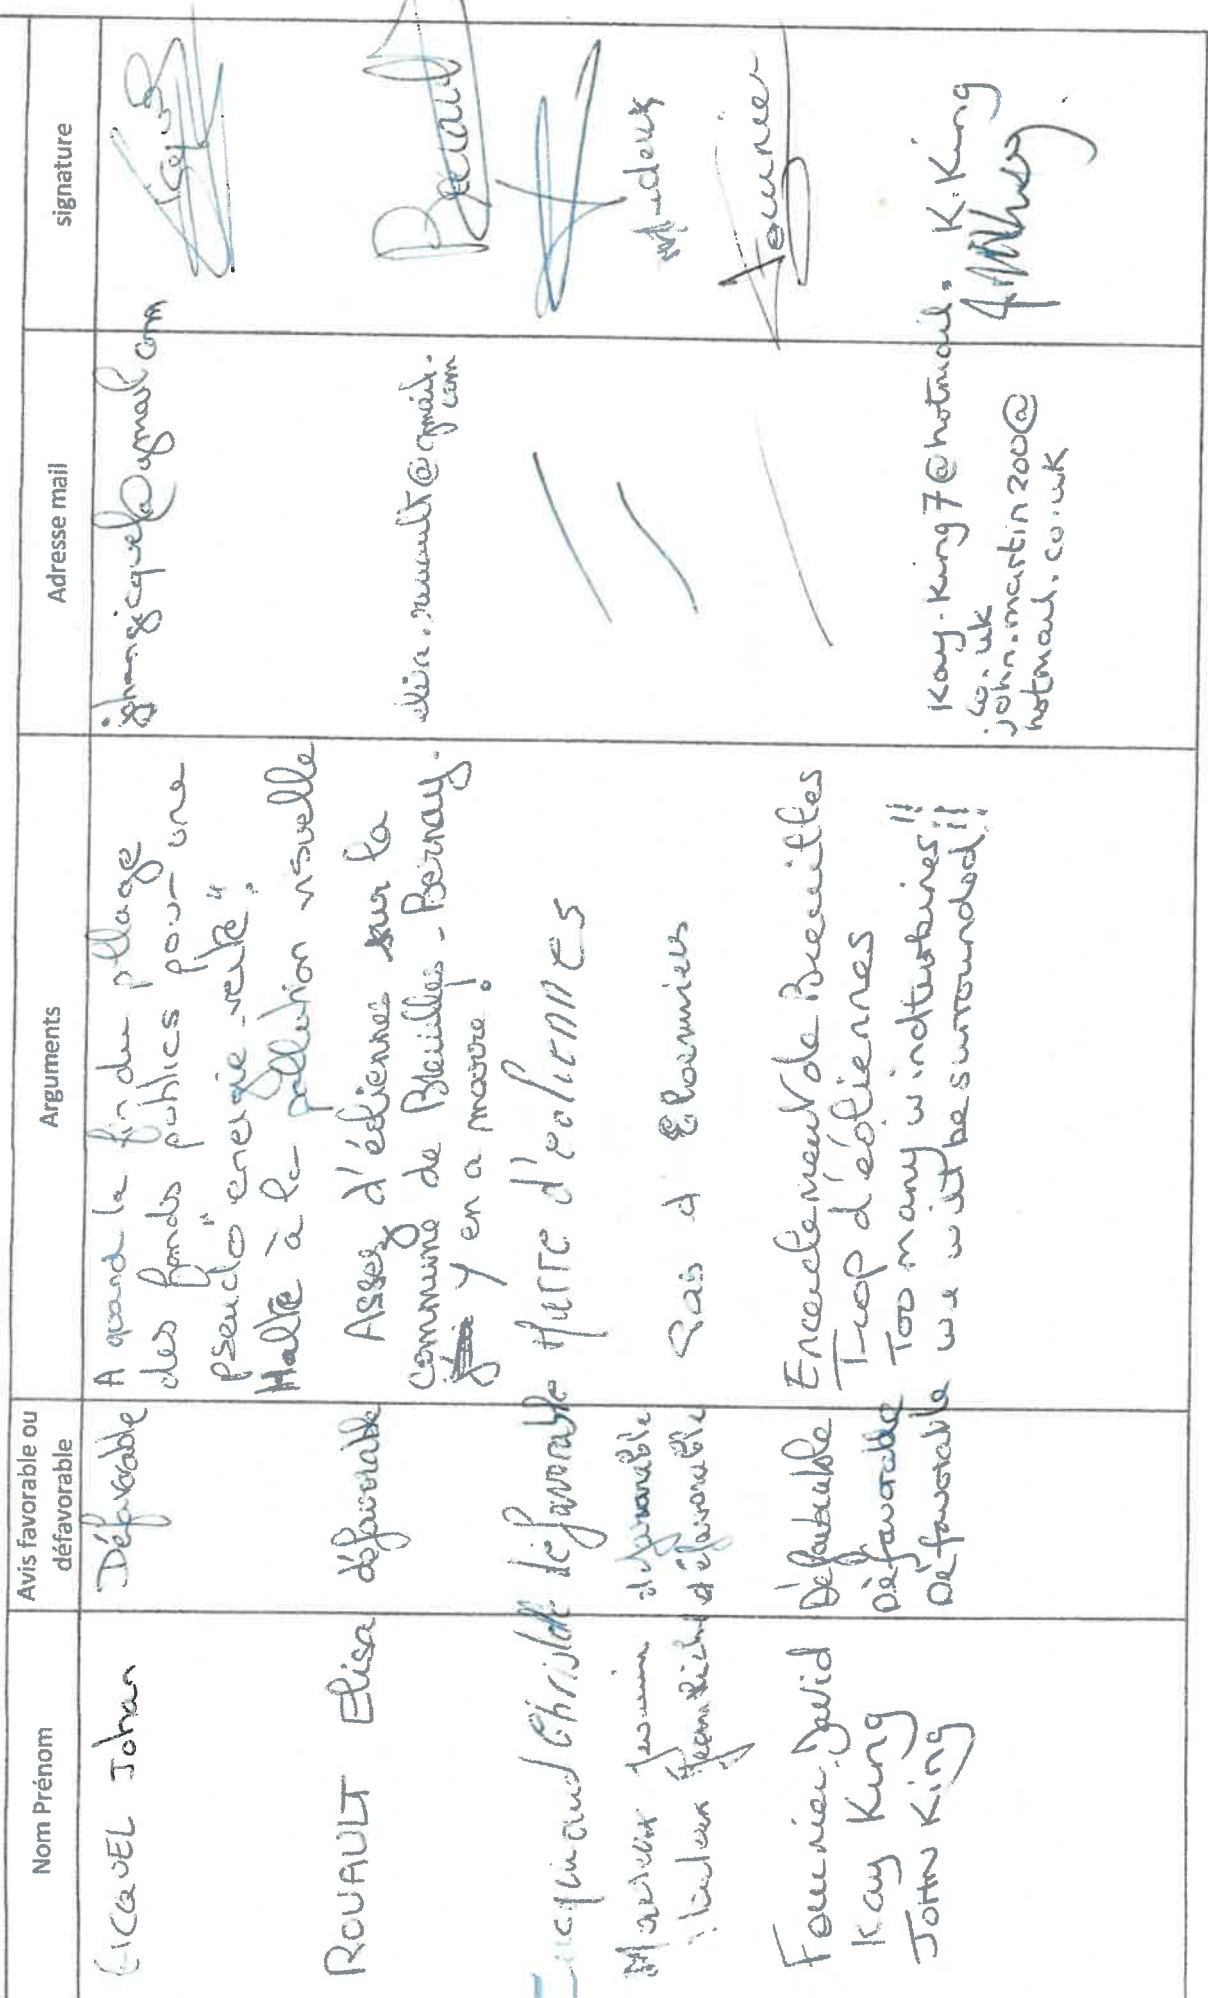 Nom Prénom
Avis favorable ou défavorable
Arguments
Adresse mail
signature
GICQUEL Johan
Défavorable
A quand la fin du pillage
des fonds publics pour une
pseudo "energie verte".
Halte à la pollution visuelle
@gmail.com
ROUAULT Elisa
défavorable
Assez d'éoliennes sur la
commune de Breuilles-Bernay.
Y en a marre!
elisa.rouault@gmail.
com
Rouault
Christelle
défavorable
Marre d'eoliennes
défavorable
défavorable
Pas d
Fournier David
Défavorable
Encerclement de Breuilles
Trop d'éoliennes
Fournier
Kay King
Défavorable
Too many windturbines!!
Kay.King7@hotmail.
co.uk
K.King
JOHN King
Défavorable
we will be surrounded!!
john.martin200@
hotmail.co.uk